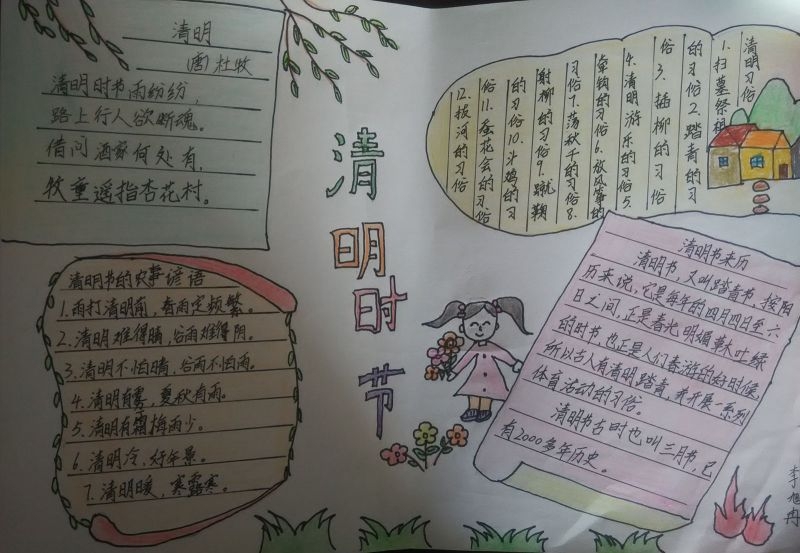 清明
(唐)杜牧
清明时节雨纷纷,
路上行人欲断魂。
借问酒家何处有,
牧重遥指杏花村。
清明时节
清明习俗
1.扫墓祭祖
的习俗2.踏青的习
俗3.插柳的习俗
4.清明游乐的习俗5.
牵钩的习俗6.放风筝的
习俗7.荡秋千的习俗8.
射柳的习俗9.蹴鞠
的习俗10.斗鸡的习
俗11.蚕花会的习俗
12.拔河的习俗
清明节的农事谚语
1.雨打清明前,春雨定频繁。
2.清明难得晴,谷雨难得阴。
3.清明不怕晴,谷雨不怕雨。
4.清明有雾,夏秋有雨。
5.清明有霜梅雨少。
6.清明冷,好年景。
7.清明暖,寒露寒。
清明节来历
清明节,又叫踏青节,按阳
历来说,它是每年的四月四日至六
日之间,正是春光明媚草木吐绿
的时节,也正是人们春游的好时候,
所以古人有清明踏青,并开展一系列
体育活动的习俗。
清明节古时也叫三月节,已
有2000多年历史。
李旭冉